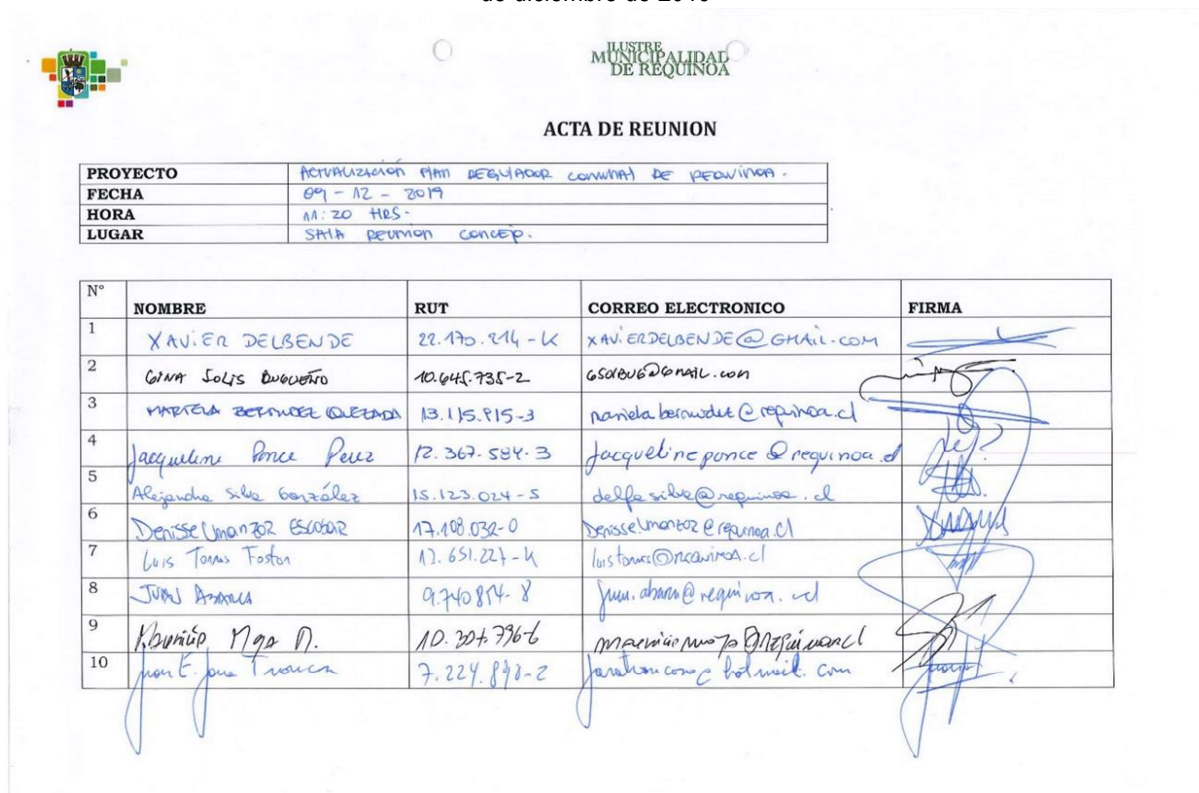 de diciembre de 2019
ILUSTRE
MUNICIPALIDAD
DE REQUINOA
ACTA DE REUNION
PROYECTO ACTUALIZACIÓN PLAN REGULADOR COMUNAL DE REQUINOA.
FECHA 09 - 12 - 2019
HORA 11:20 HRS.
LUGAR SALA REUNION CONCEJO.
N° NOMBRE RUT CORREO ELECTRONICO FIRMA
1 XAVIER DELBENDE 22.170.214-K XAVIERDELBENDE@GMAIL.COM
2 GINA SOLIS BUGUEÑO 10.645.735-2 GSOLBUG@GMAIL.COM
3 MARIELA BERMUDEZ QUEZADA 13.115.915-3 mariela.bermudez@requinoa.cl
4 Jacqueline Ponce Perez 12.367.584-3 jacqueline.ponce@requinoa.cl
5 Alejandra Silva González 15.123.024-5 @requinoa.cl
6 Denisse Umanzor ESCOBAR 17.108.032-0 Denisse.Umanzor@requinoa.cl
7 Luis Torres luistorres@requinoa.cl
8 JUAN ABARCA 9.740.854-8 juan.abarca@requinoa.cl
9 Mauricio
10 7.224.890-2 hotmail.com